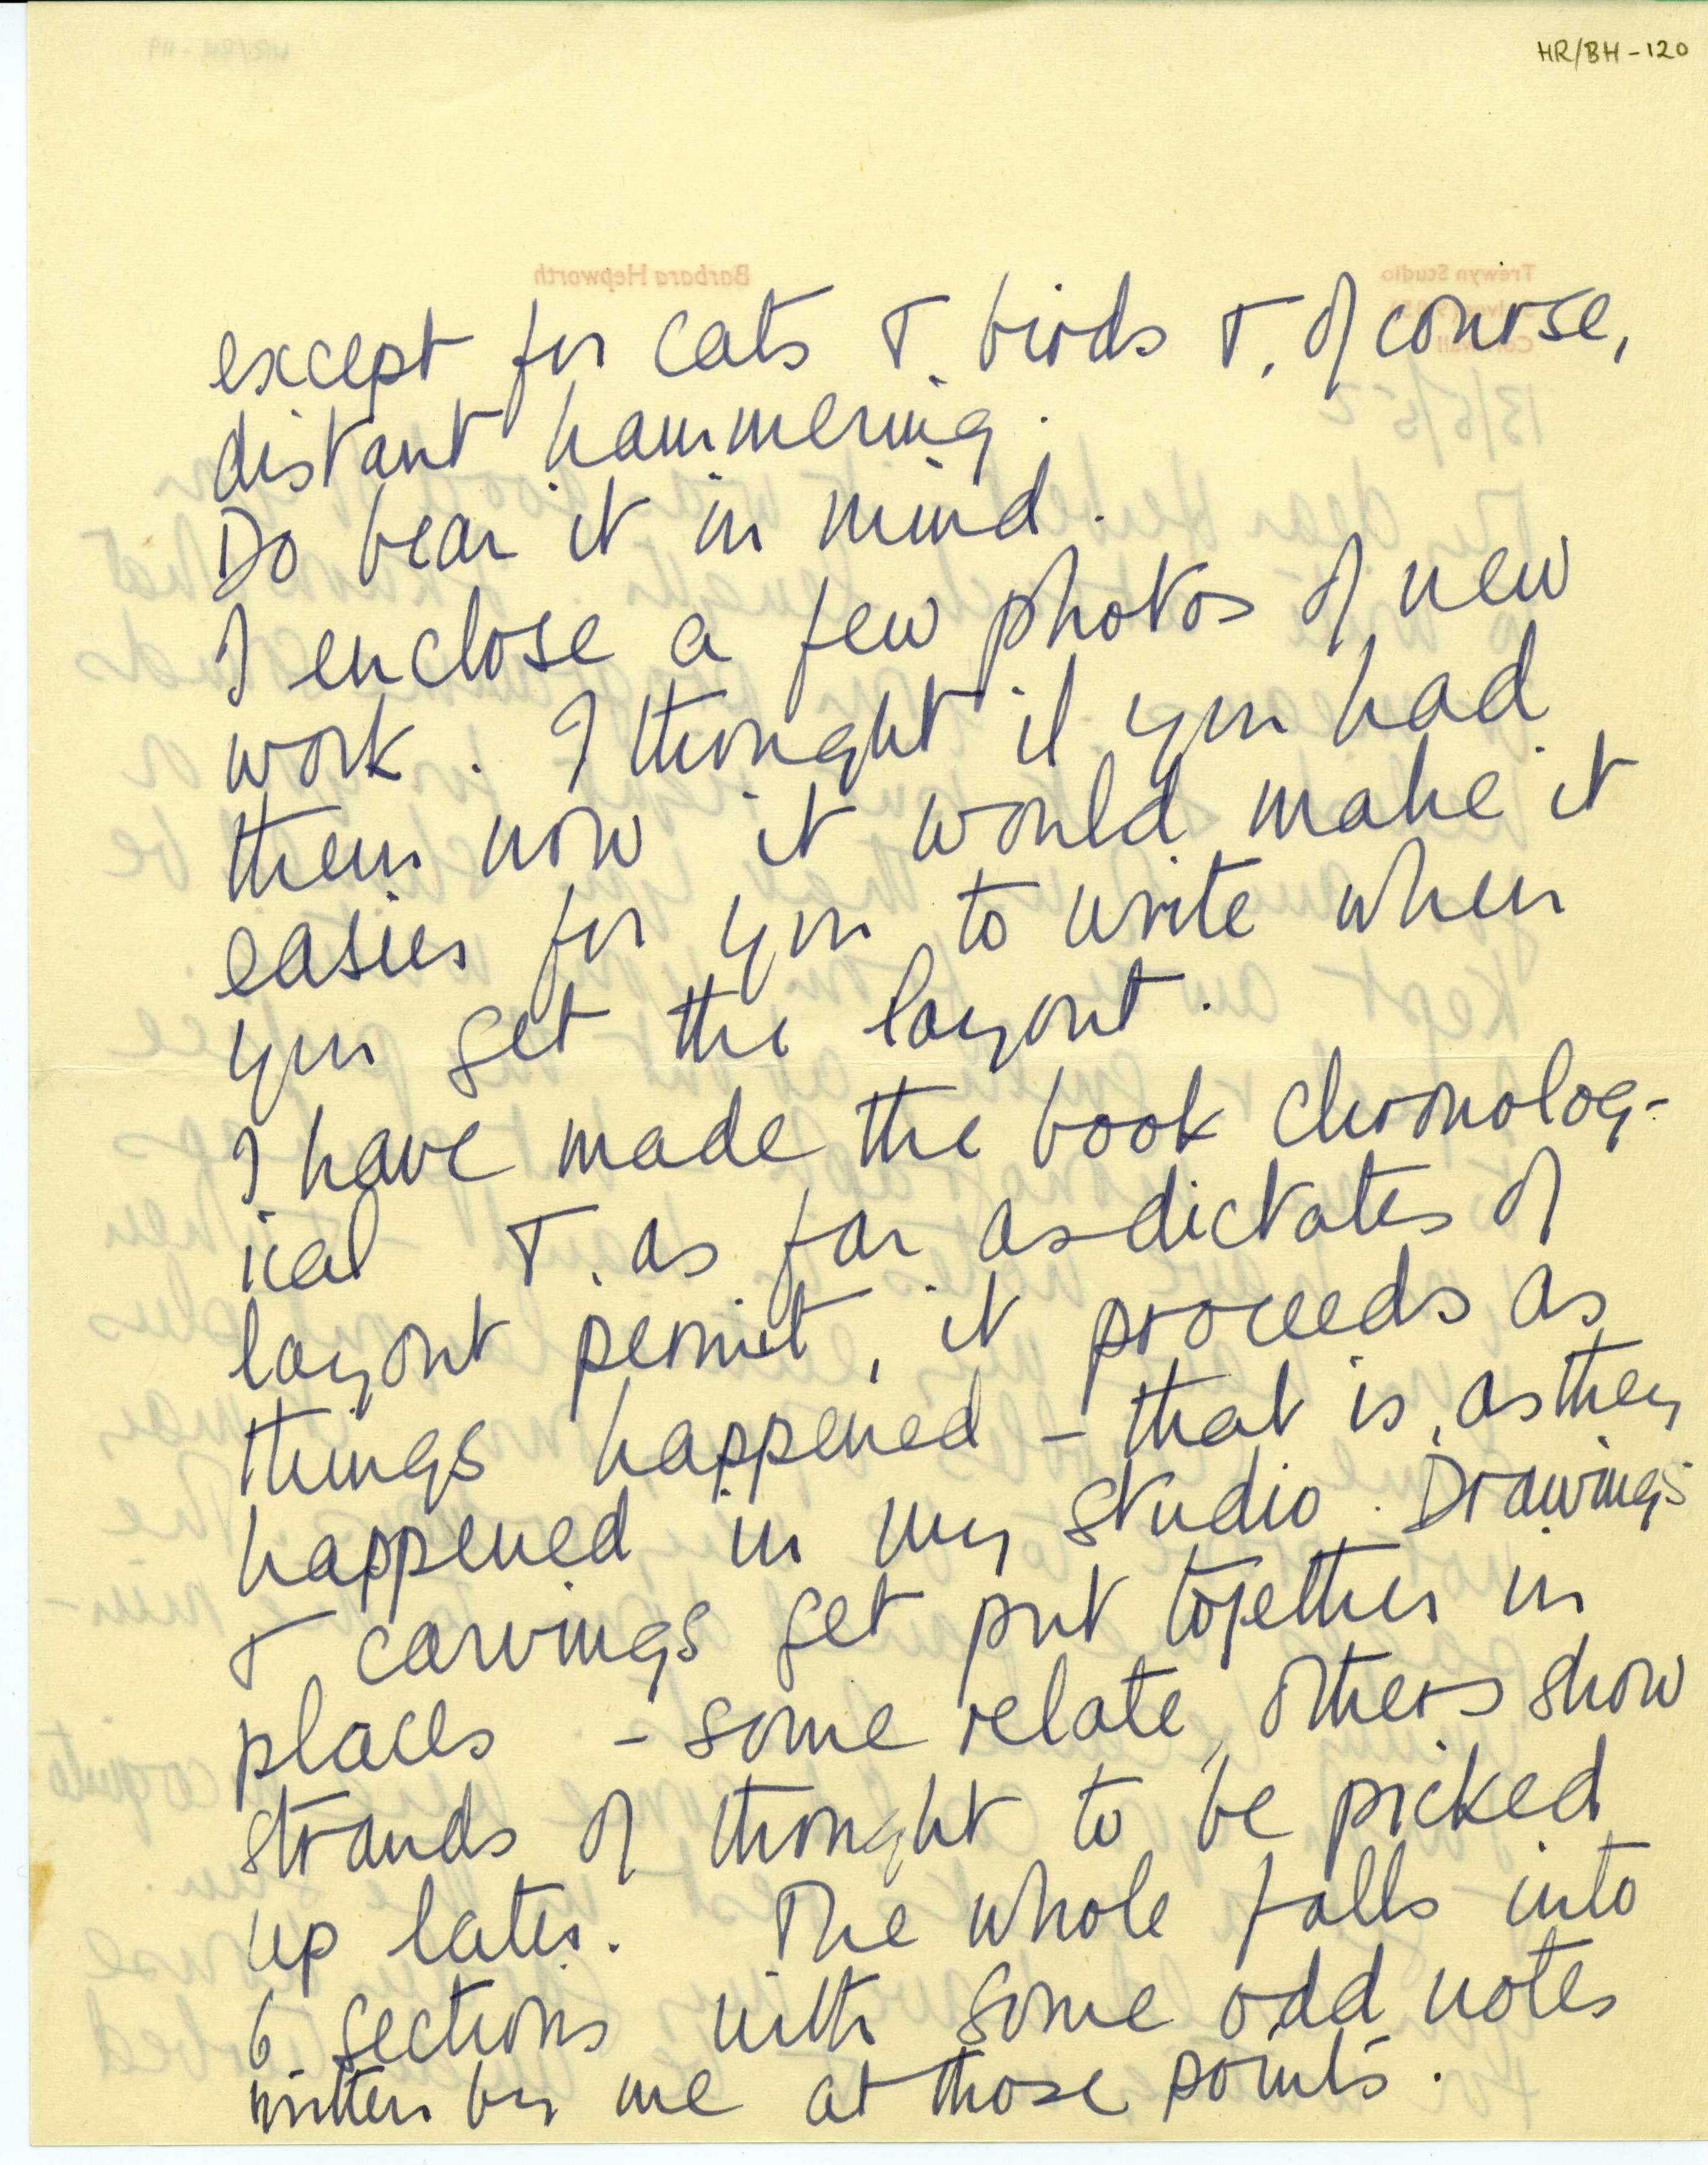 HR/BH-120
Barbara Hepworth
Trewyn Studio
except for cats & birds &, of course,
distant hammering.
Do bear it in mind.
I enclose a few photos of new
work. I thought if you had
them now it would make it
easier for you to write when
you get the layout.
I have made the book chronolog-
ical & as far as dictates of
layout permit, it proceeds as
things happened - that is, as they
happened in my studio. Drawings
& carvings get put together in
places - some relate, others show
strands of thought to be picked
up later. The whole falls into
6 sections with some odd notes
written by me at those points.